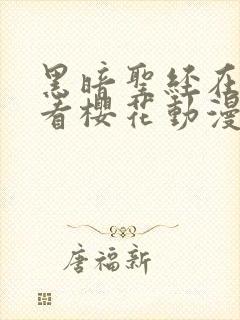 黑暗聖經在
看櫻花動漫
唐福新